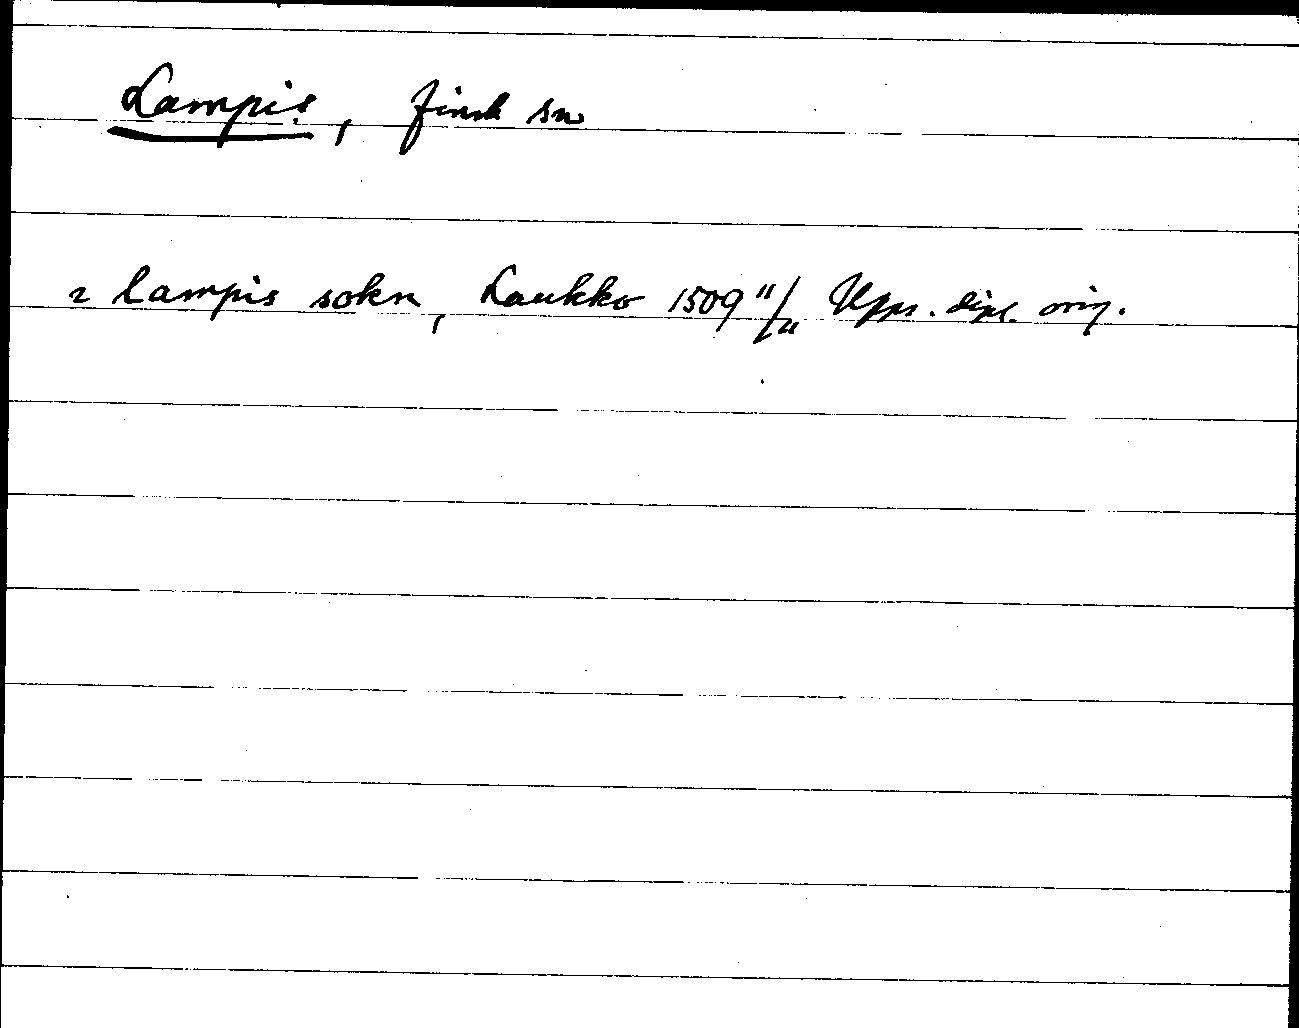 Lampis, finsk sn
i lampis sokn, Laukko 1509 11/11 Upps. dipl. orig.